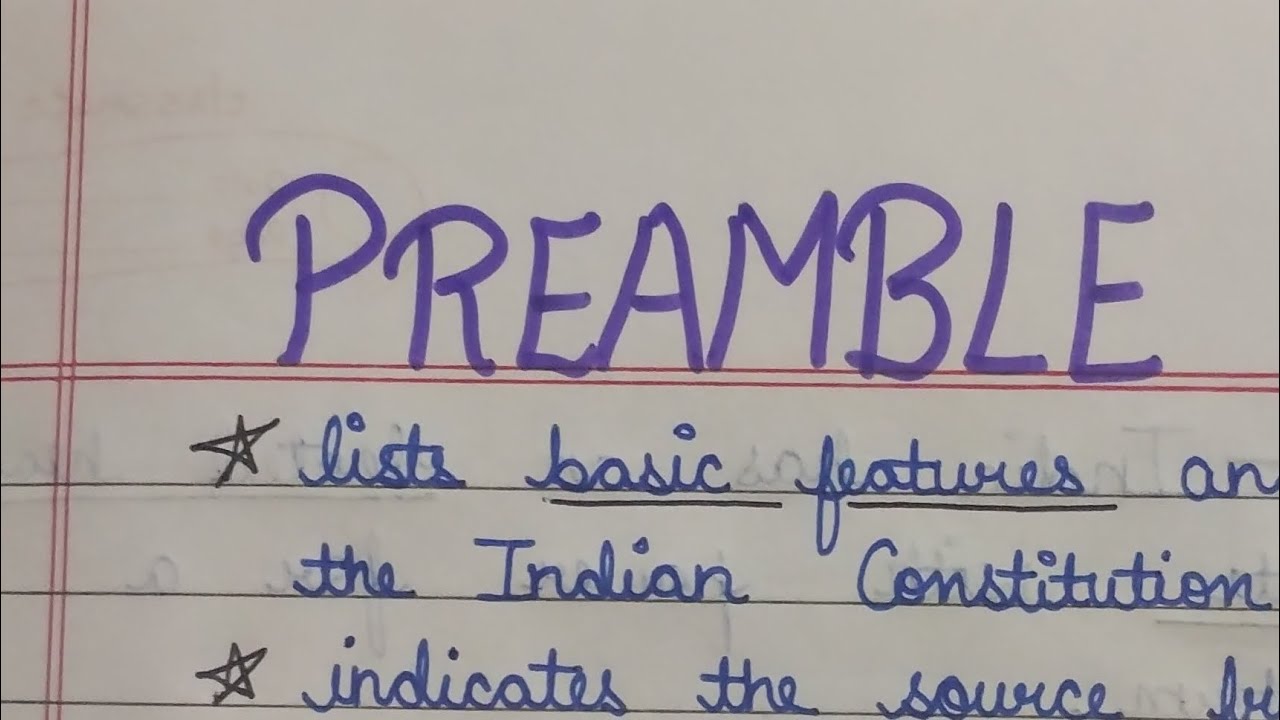 PREAMBLE
☆ lists basic features an
the Indian Constitution
☆ indicates the source